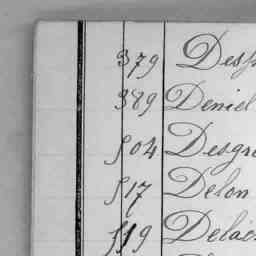 379 Dess
389 Deniel
504 Desgr
517 Delon
519 Delac